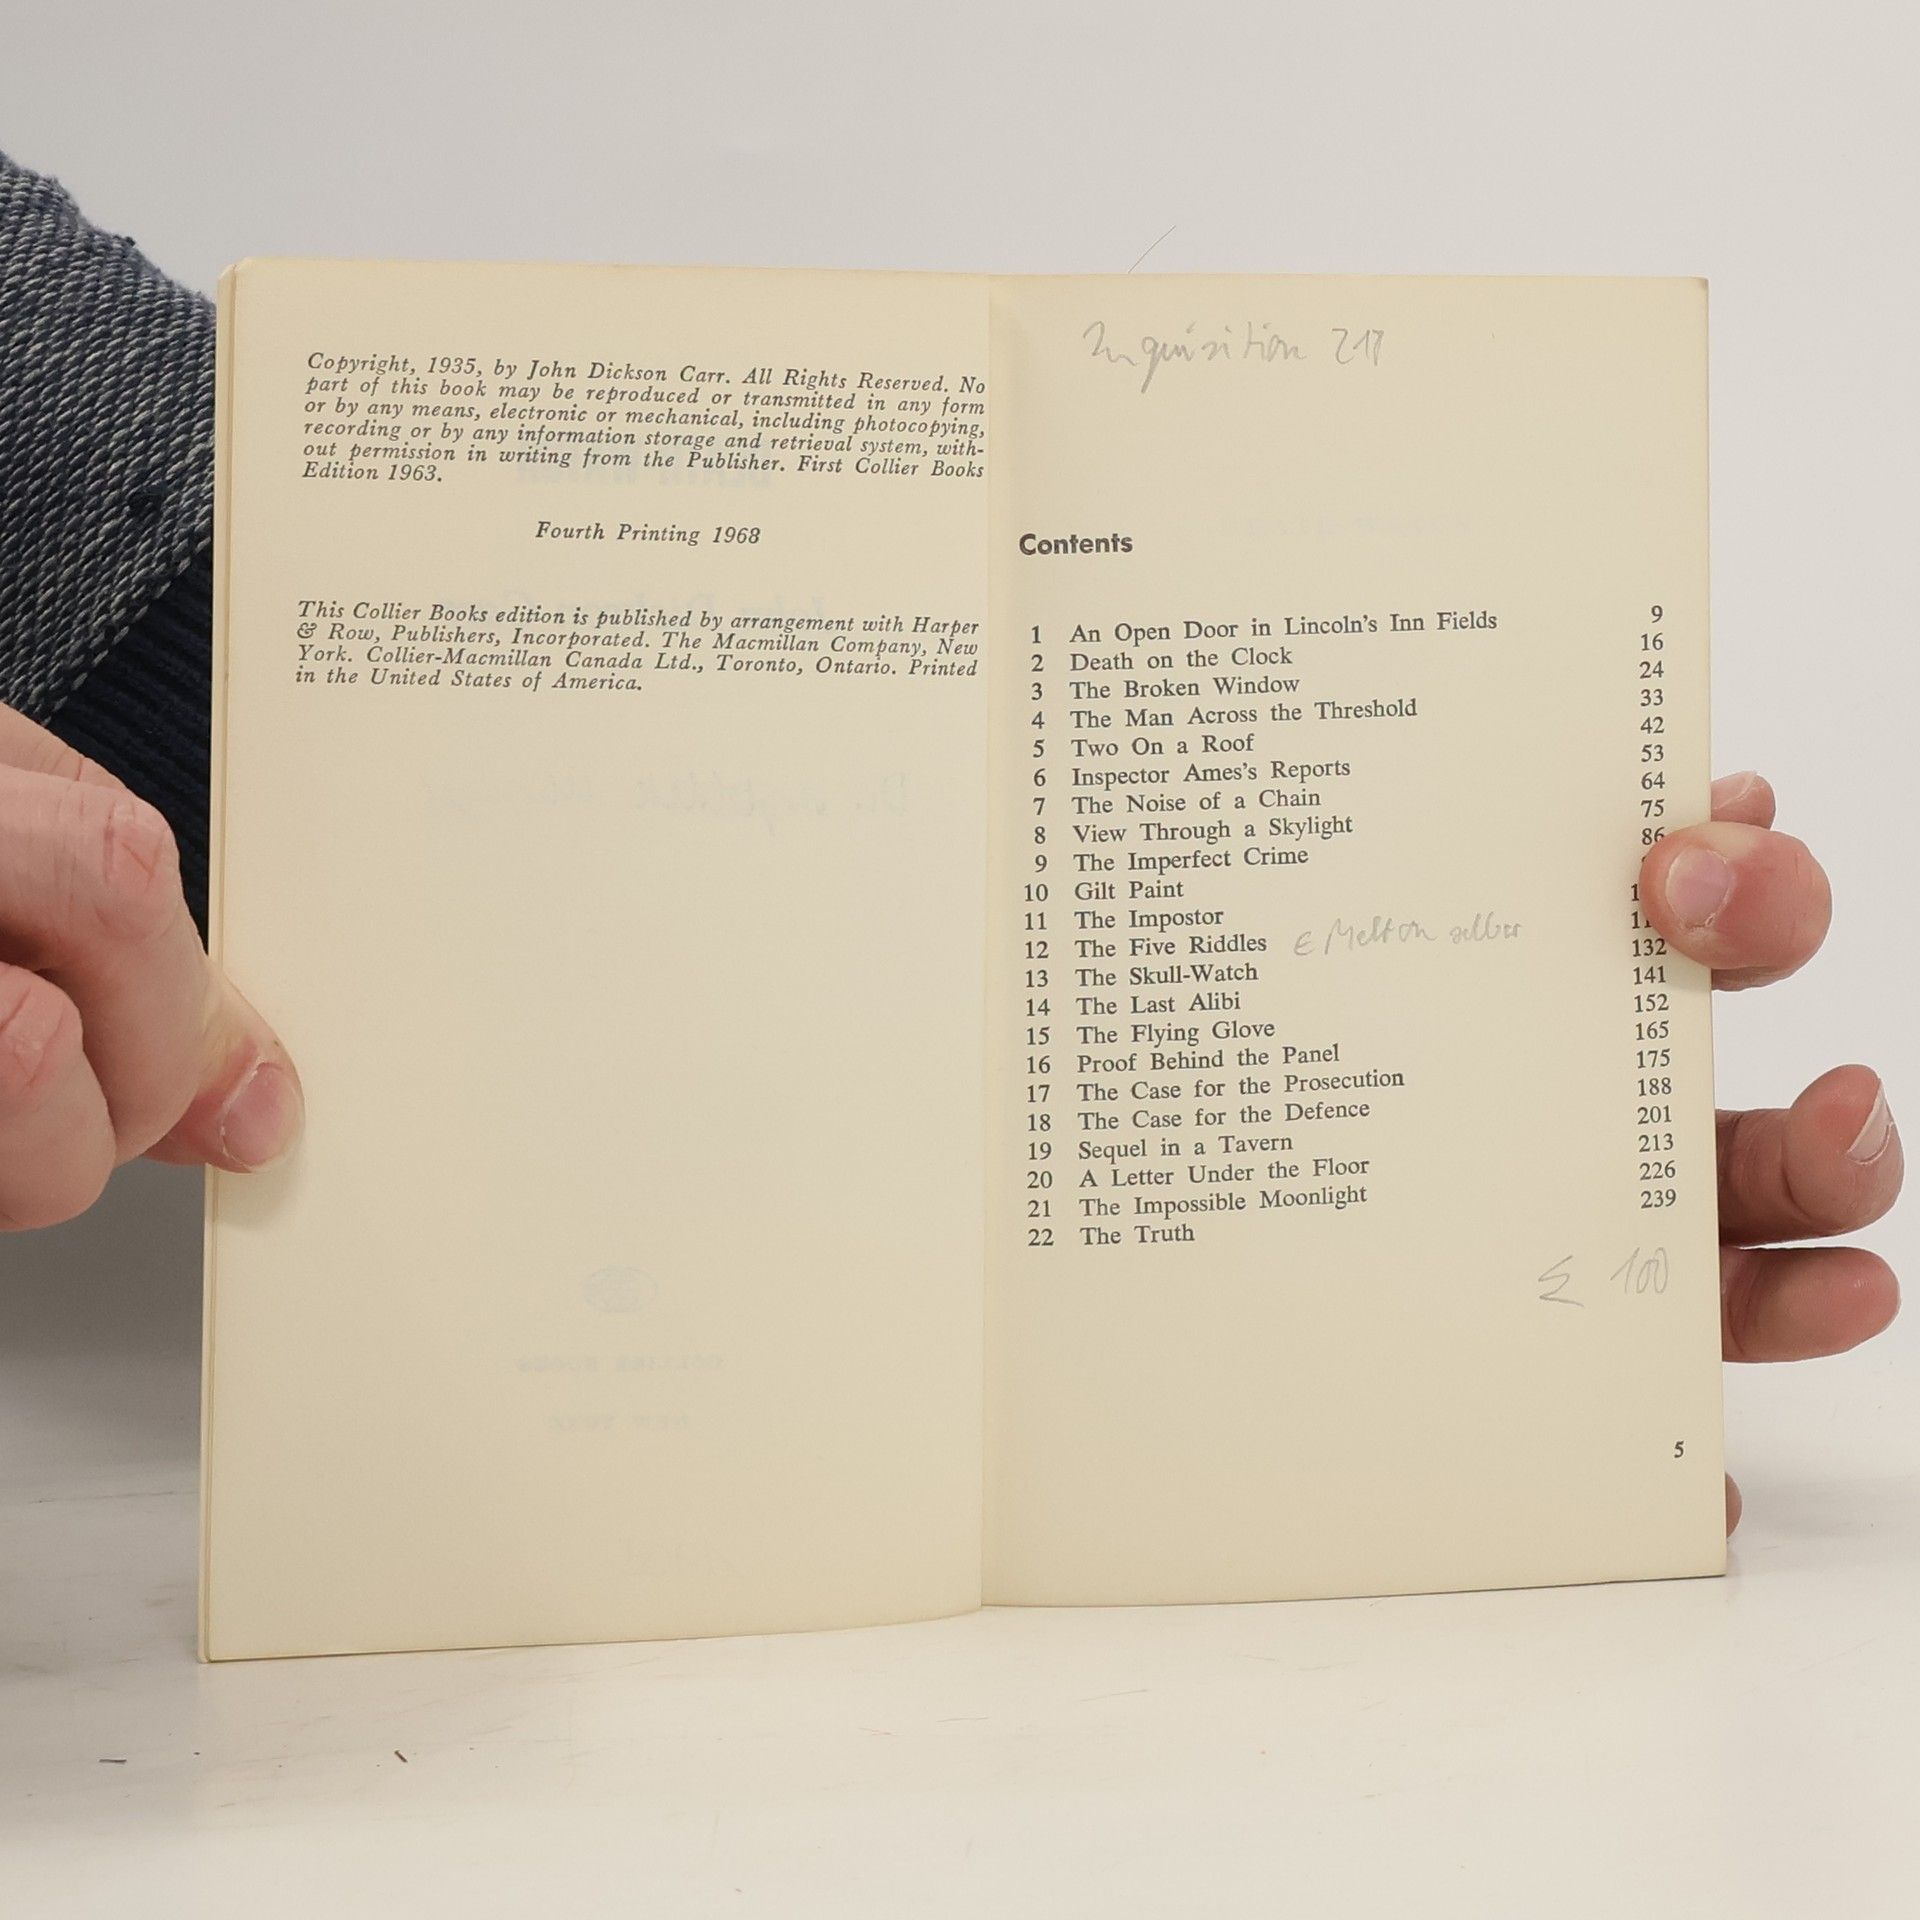 Copyright, 1935, by John Dickson Carr. All Rights Reserved. No
part of this book may be reproduced or transmitted in any form
or by any means, electronic or mechanical, including photocopying,
recording or by any information storage and retrieval system, with-
out permission in writing from the Publisher. First Collier Books
Edition 1963.
Fourth Printing 1968
This Collier Books edition is published by arrangement with Harper
& Row, Publishers, Incorporated. The Macmillan Company, New
York. Collier-Macmillan Canada Ltd., Toronto, Ontario. Printed
in the United States of America.
Inquisition
Contents
1 An Open Door in Lincoln's Inn Fields 9
2 Death on the Clock 16
3 The Broken Window 24
4 The Man Across the Threshold 33
5 Two On a Roof 42
6 Inspector Ames's Reports 53
7 The Noise of a Chain 64
8 View Through a Skylight 75
9 The Imperfect Crime 86
10 Gilt Paint
11 The Impostor
12 The Five Riddles Melton selber
13 The Skull-Watch 132
14 The Last Alibi 141
15 The Flying Glove 152
16 Proof Behind the Panel 165
17 The Case for the Prosecution 175
18 The Case for the Defence 188
19 Sequel in a Tavern 201
20 A Letter Under the Floor 213
21 The Impossible Moonlight 226
22 The Truth 239
Σ 100
5